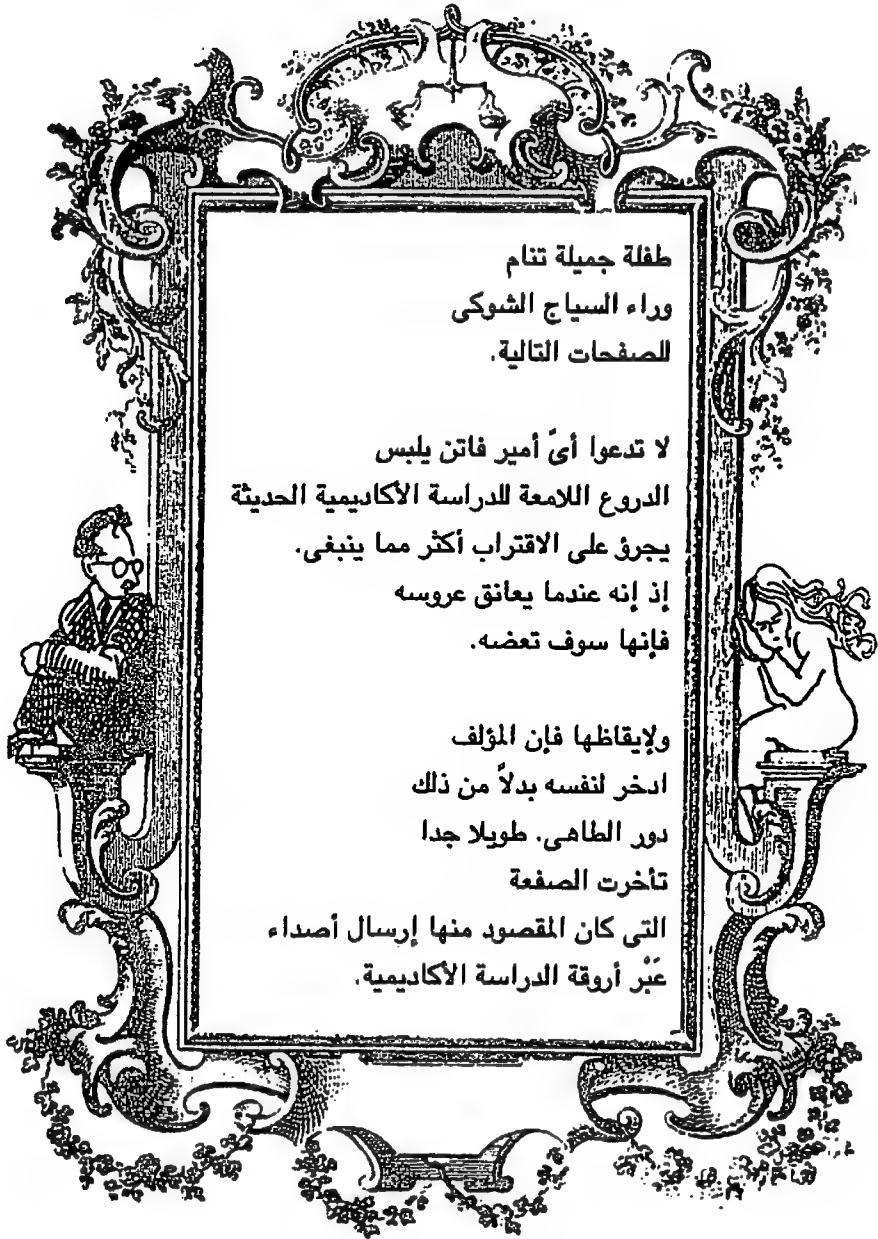 طفلة جميلة تنام
وراء السياج الشوكى
للصفحات التالية.
لا تدعوا أىَّ أمير فاتن يلبس
الدروع اللامعة للدراسة الأكاديمية الحديثة
يجرؤ على الاقتراب أكثر مما ينبغى.
إذ إنه عندما يعانق عروسه
فإنها سوف تعضه.
ولإيقاظها فإن المؤلف
ادخر لنفسه بدلاً من ذلك
دور الطاهى. طويلا جدا
تأخرت الصفعة
التى كان المقصود منها إرسال أصداء
عَبْر أروقة الدراسة الأكاديمية.